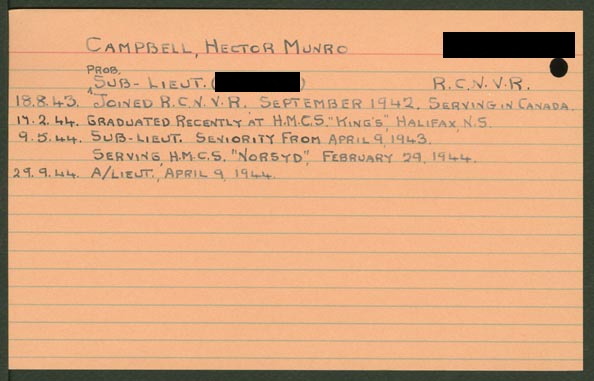 CAMPBELL, HECTOR MUNRO
PROB.
SUB-LIEUT. ( ) R.C.N.V.R.
18.8.43. JOINED R.C.N.V.R. SEPTEMBER 1942. SERVING IN CANADA.
17.2.44. GRADUATED RECENTLY AT H.M.C.S. "KING'S", HALIFAX, N.S.
9.5.44. SUB-LIEUT. SENIORITY FROM APRIL 9, 1943.
SERVING, H.M.C.S. "NORSYD", FEBRUARY 29, 1944.
29.9.44. A/LIEUT., APRIL 9, 1944.